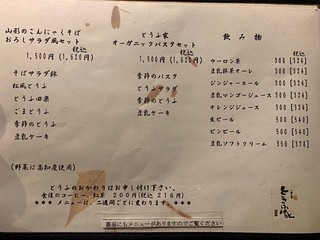 山形のこんにゃくそば
おろしサラダ風セット
税込
1,500円(1,620円)
そばサラダ鉢
松風どうふ
とうふ田楽
ごまどうふ
季節のとうふ
豆乳ケーキ
とうふ家
オーガニックパスタセット
税込
1,500円(1,620円)
季節のパスタ
とうふサラダ
季節のとうふ
季節のとうふ
豆乳ケーキ
飲み物
税込
ウーロン茶 300 [324]
豆乳抹茶オーレ 300 [324]
ジンジャーエール 300 [324]
豆乳マンゴージュース 300 [324]
オレンジジュース 300 [324]
生ビール 500 [540]
ビンビール 500 [540]
豆乳ソフトクリーム 350 [378]
(野菜は高知産使用)
とうふのおかわりはお申し付け下さい。
食後のコーヒー、紅茶 200円(税込216円)
*** メニューは、二週間ごとに変わります。 ***
裏面にもメニューがありますのでご覧ください